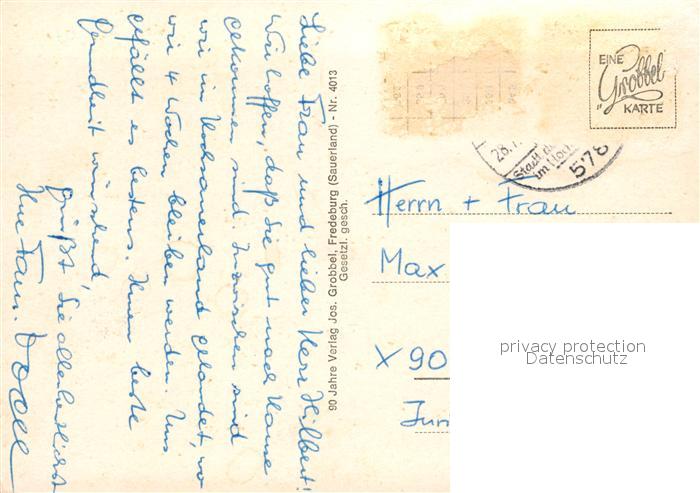 Liebe Frau und lieber Herr Hilbert!
Wir hoffen, daß Sie gut nach Hause
gekommen sind. Inzwischen sind
wir in Hochsauerland gelandet, wo
wir 4 Wochen bleiben werden. Uns
gefällt es bestens. Ihnen beste
Gesundheit wünschend,
grüßt Sie allerherzlichst
Ihre Fam.
90 Jahre Verlag Jos. Grobbel, Fredeburg (Sauerland) - Nr. 4013
Gesetzl. gesch.
EINE
"Grobbel"
KARTE
28.
Stadt
im Hoch
578
Herrn + Frau
Max
X 90
privacy protection
Datenschutz